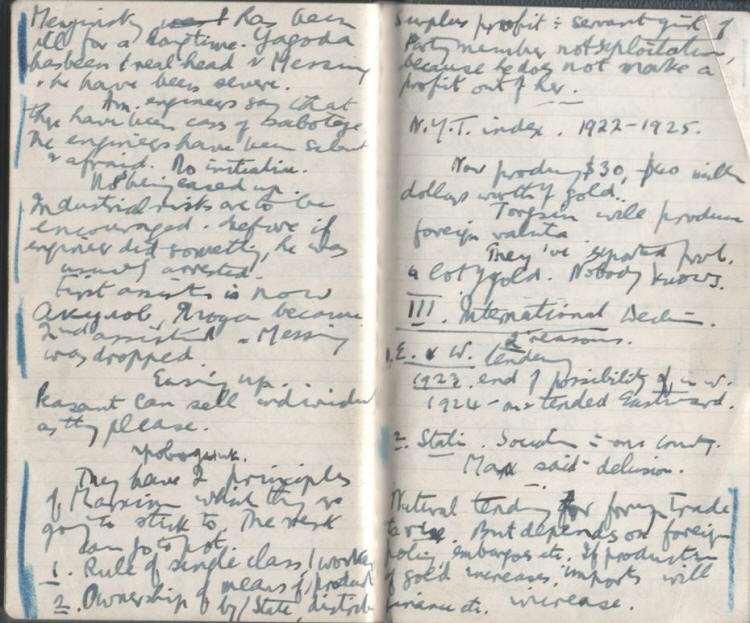 Menzinsky has been
ill for a long time. Yagoda
has been real head & Messing
& he have been severe.
Am. engineers say that
there have been cases of sabotage.
The engineers have been silent
& afraid. No initiative.
Now being eased up.
Industrial risks are to be
encouraged. Before if
engineer did something, he was
usually arrested.
First assist. is now
Akulov, became
2nd assistant & Messing
was dropped.
Easing up.
Peasant can sell individual
as they please.
They have 2 principles
of Marxism
going to stick to. The rest
can go to pot.
1. Rule of single class, / workers
2. Ownership of means of / product
by / State, distrib
Surplus profit : servant girl of
Party member not exploitation,
because he does not make a
profit out of her.
N.Y.T. index. 1922-1925.
Now producing $30, - $40 million
dollars worth of gold.
Torgsin will produce
foreign valuta
They've exported prob.
a lot of gold. Nobody knows.
III. International
2 reasons.
1. E. & W. tendency
1923. end of possibility of in W.
1924 - tended Eastward.
2. Stalin. Socialism in one country.
Marx said - delusion.
Natural tendency for foreign trade
to rise. But depends on foreign
policy, embargoes etc. If production
of gold increases, imports will
increase.